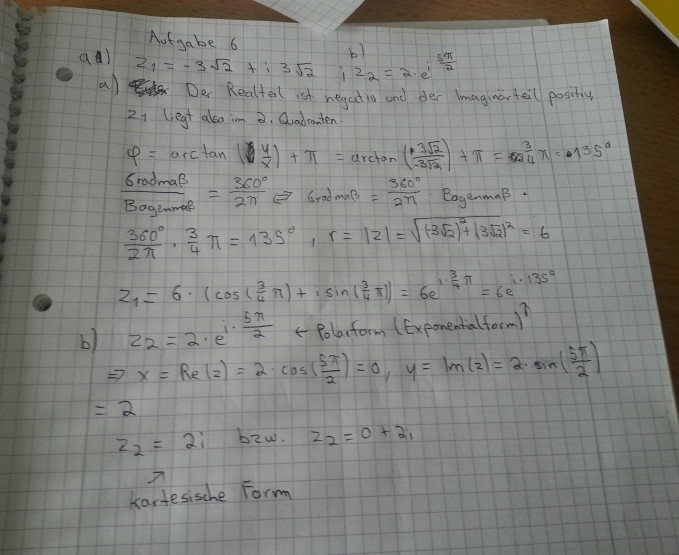 Aufgabe 6
a) z₁ = -3√2 + i 3√2 ; b) z₂ = 2·e^(i 5π/2)
a) Der Realteil ist negativ und der Imaginärteil positiv,
z₁ liegt also im 2. Quadranten.
φ = arctan(y/x) + π = arctan(3√2/3√2) + π = 3/4 π = 135°
Gradmaß/Bogenmaß = 360°/2π ⇔ Gradmaß = 360°/2π · Bogenmaß ·
360°/2π · 3/4 π = 135°, r = |z| = √((-3√2)² + (3√2)²) = 6
z₁ = 6·(cos(3/4 π) + i sin(3/4 π)) = 6e^(i·3/4 π) = 6e^(i·135°)
b) z₂ = 2·e^(i·5π/2) ← Polarform (Exponentialform) ↑
⇒ x = Re(z) = 2·cos(5π/2) = 0, y = Im(z) = 2·sin(5π/2)
= 2
z₂ = 2i bzw. z₂ = 0 + 2i
↗
kartesische Form